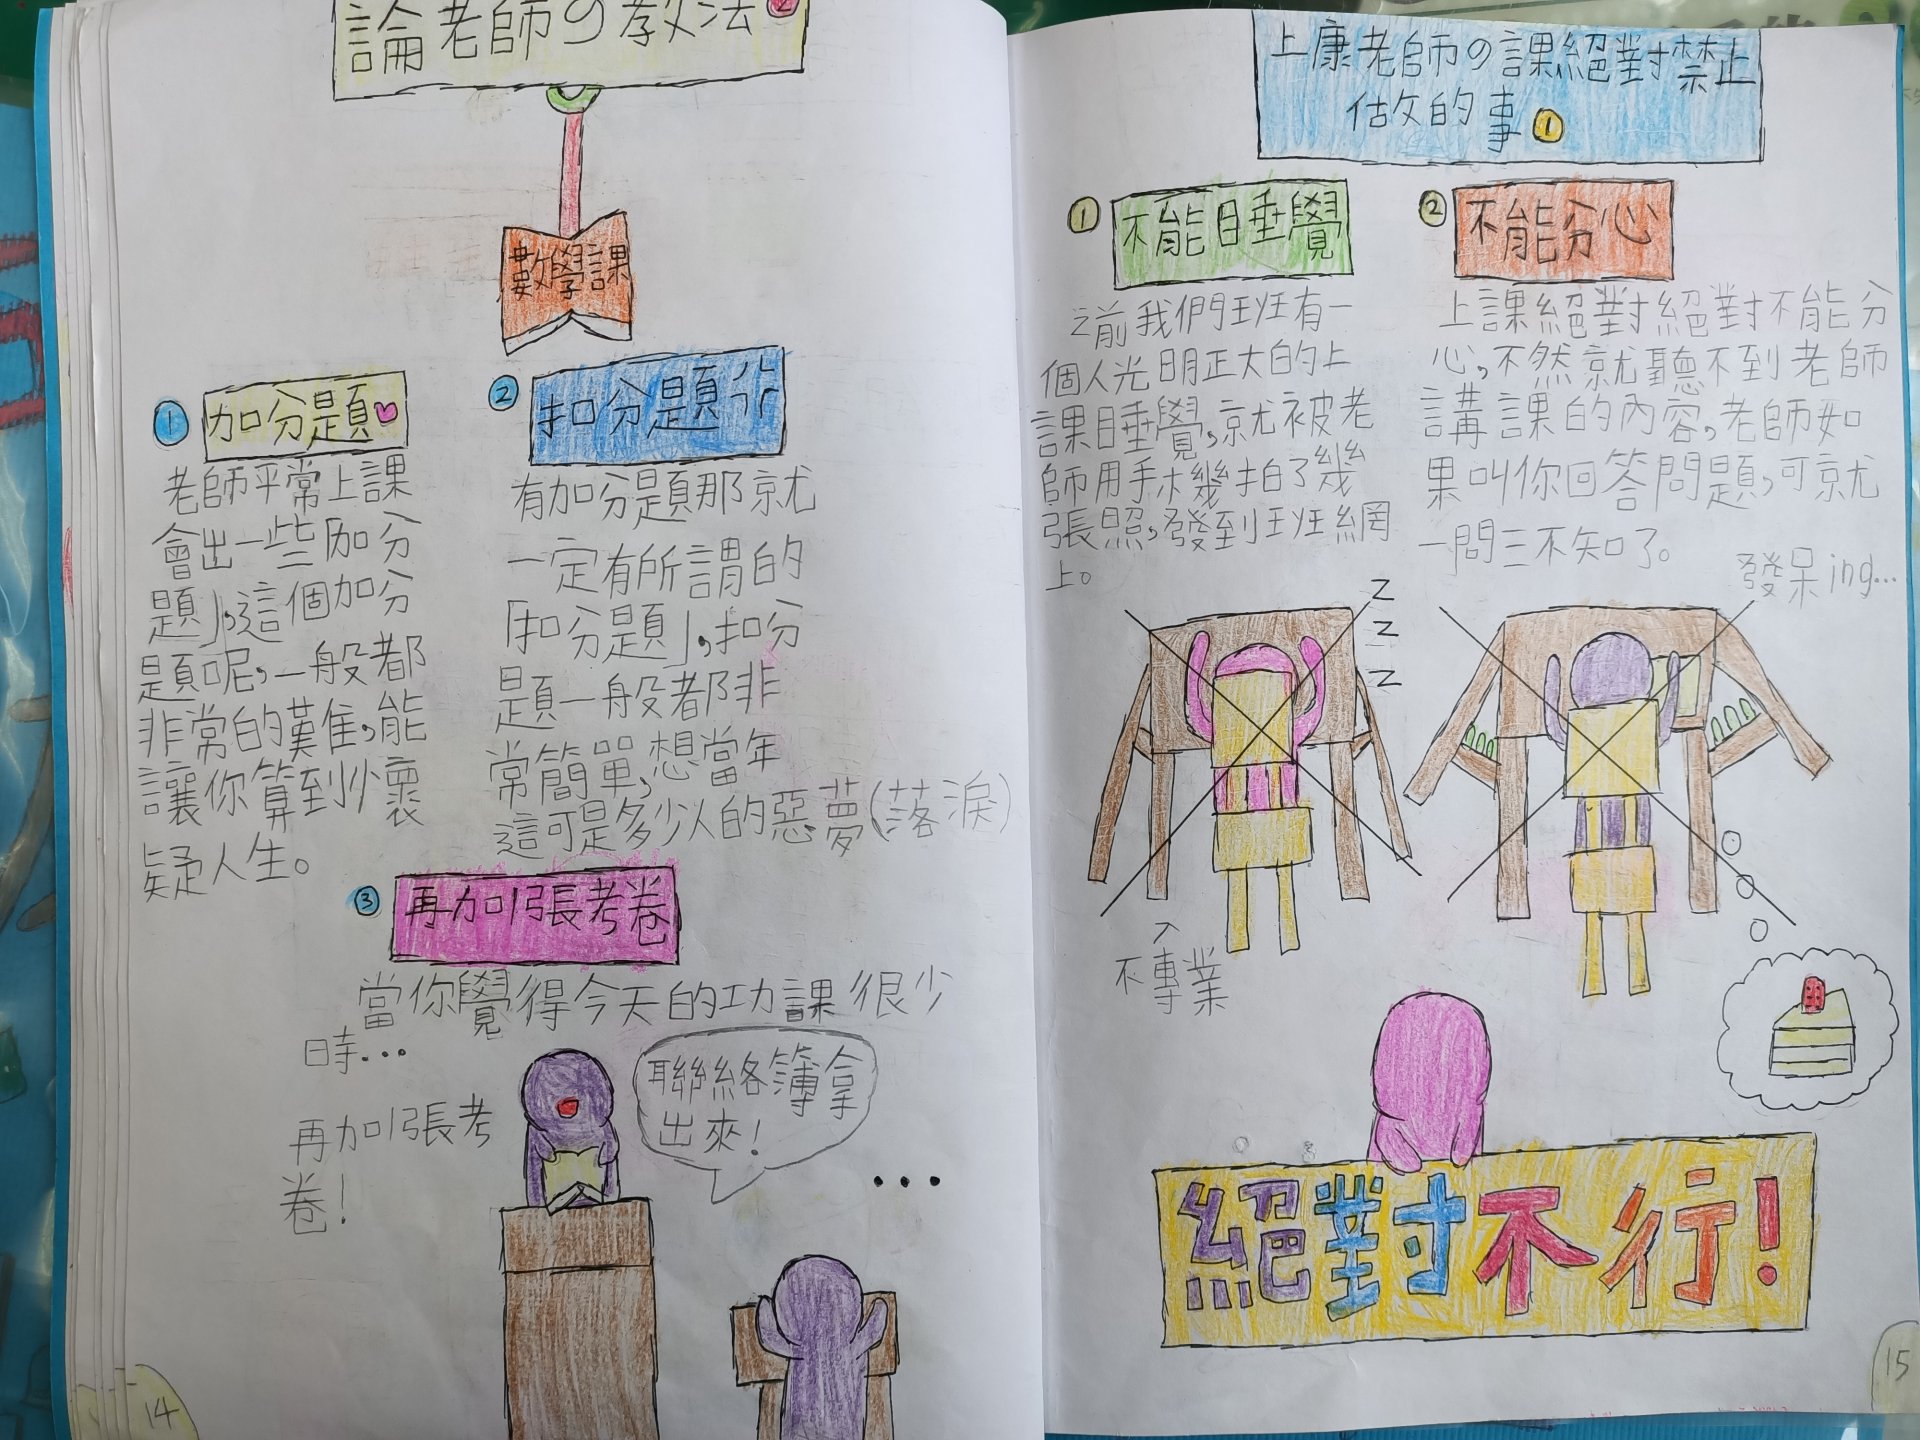 論老師の教法2
數學課
1 加分題
老師平常上課
會出一些「加分
題」,這個加分
題呢,一般都
非常的難,能
讓你算到懷
疑人生。
2 扣分題
有加分題那就
一定有所謂的
「扣分題」,扣分
題一般都非
常簡單,想當年
這可是多少人的惡夢(落淚)
3 再加1張考卷
當你覺得今天的功課很少
時...
再加1張考
卷!
聯絡簿拿
出來!
...
14
上康老師の課絕對禁止
做的事1
1 不能睡覺
之前我們班有一
個人光明正大的上
課睡覺,就被老
師用手機拍了幾
張照,發到班網
上。
z
z
z
不專業
2 不能分心
上課絕對絕對不能分
心,不然就聽不到老師
講課的內容,老師如
果叫你回答問題,可就
一問三不知了。
發呆ing...
絕對不行!
15